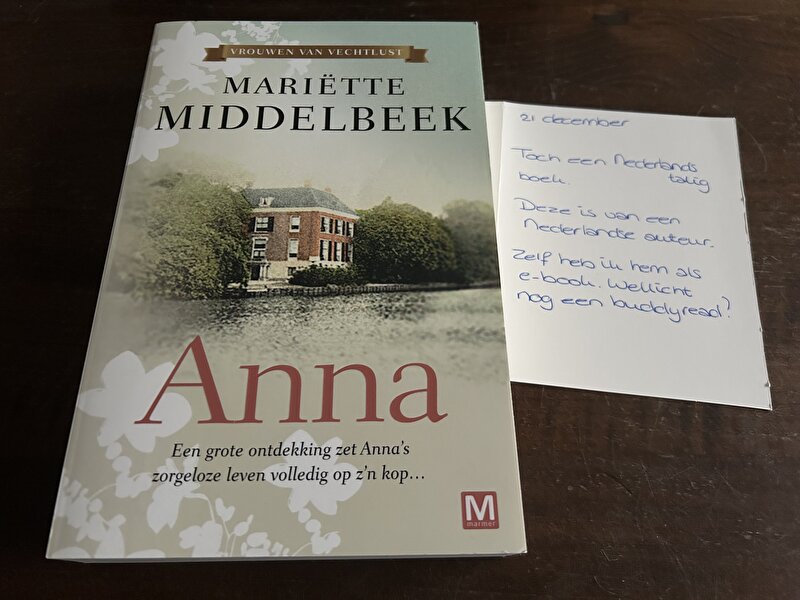 VROUWEN VAN VECHTLUST
MARIËTTE
MIDDELBEEK
Anna
Een grote ontdekking zet Anna's
zorgeloze leven volledig op z'n kop...
M
marmer
21 december
Toch een Nederlands
talig
boek.
Deze is van een
Nederlandse auteur.
Zelf heb ik hem als
e-book. Wellicht
nog een buddyread?